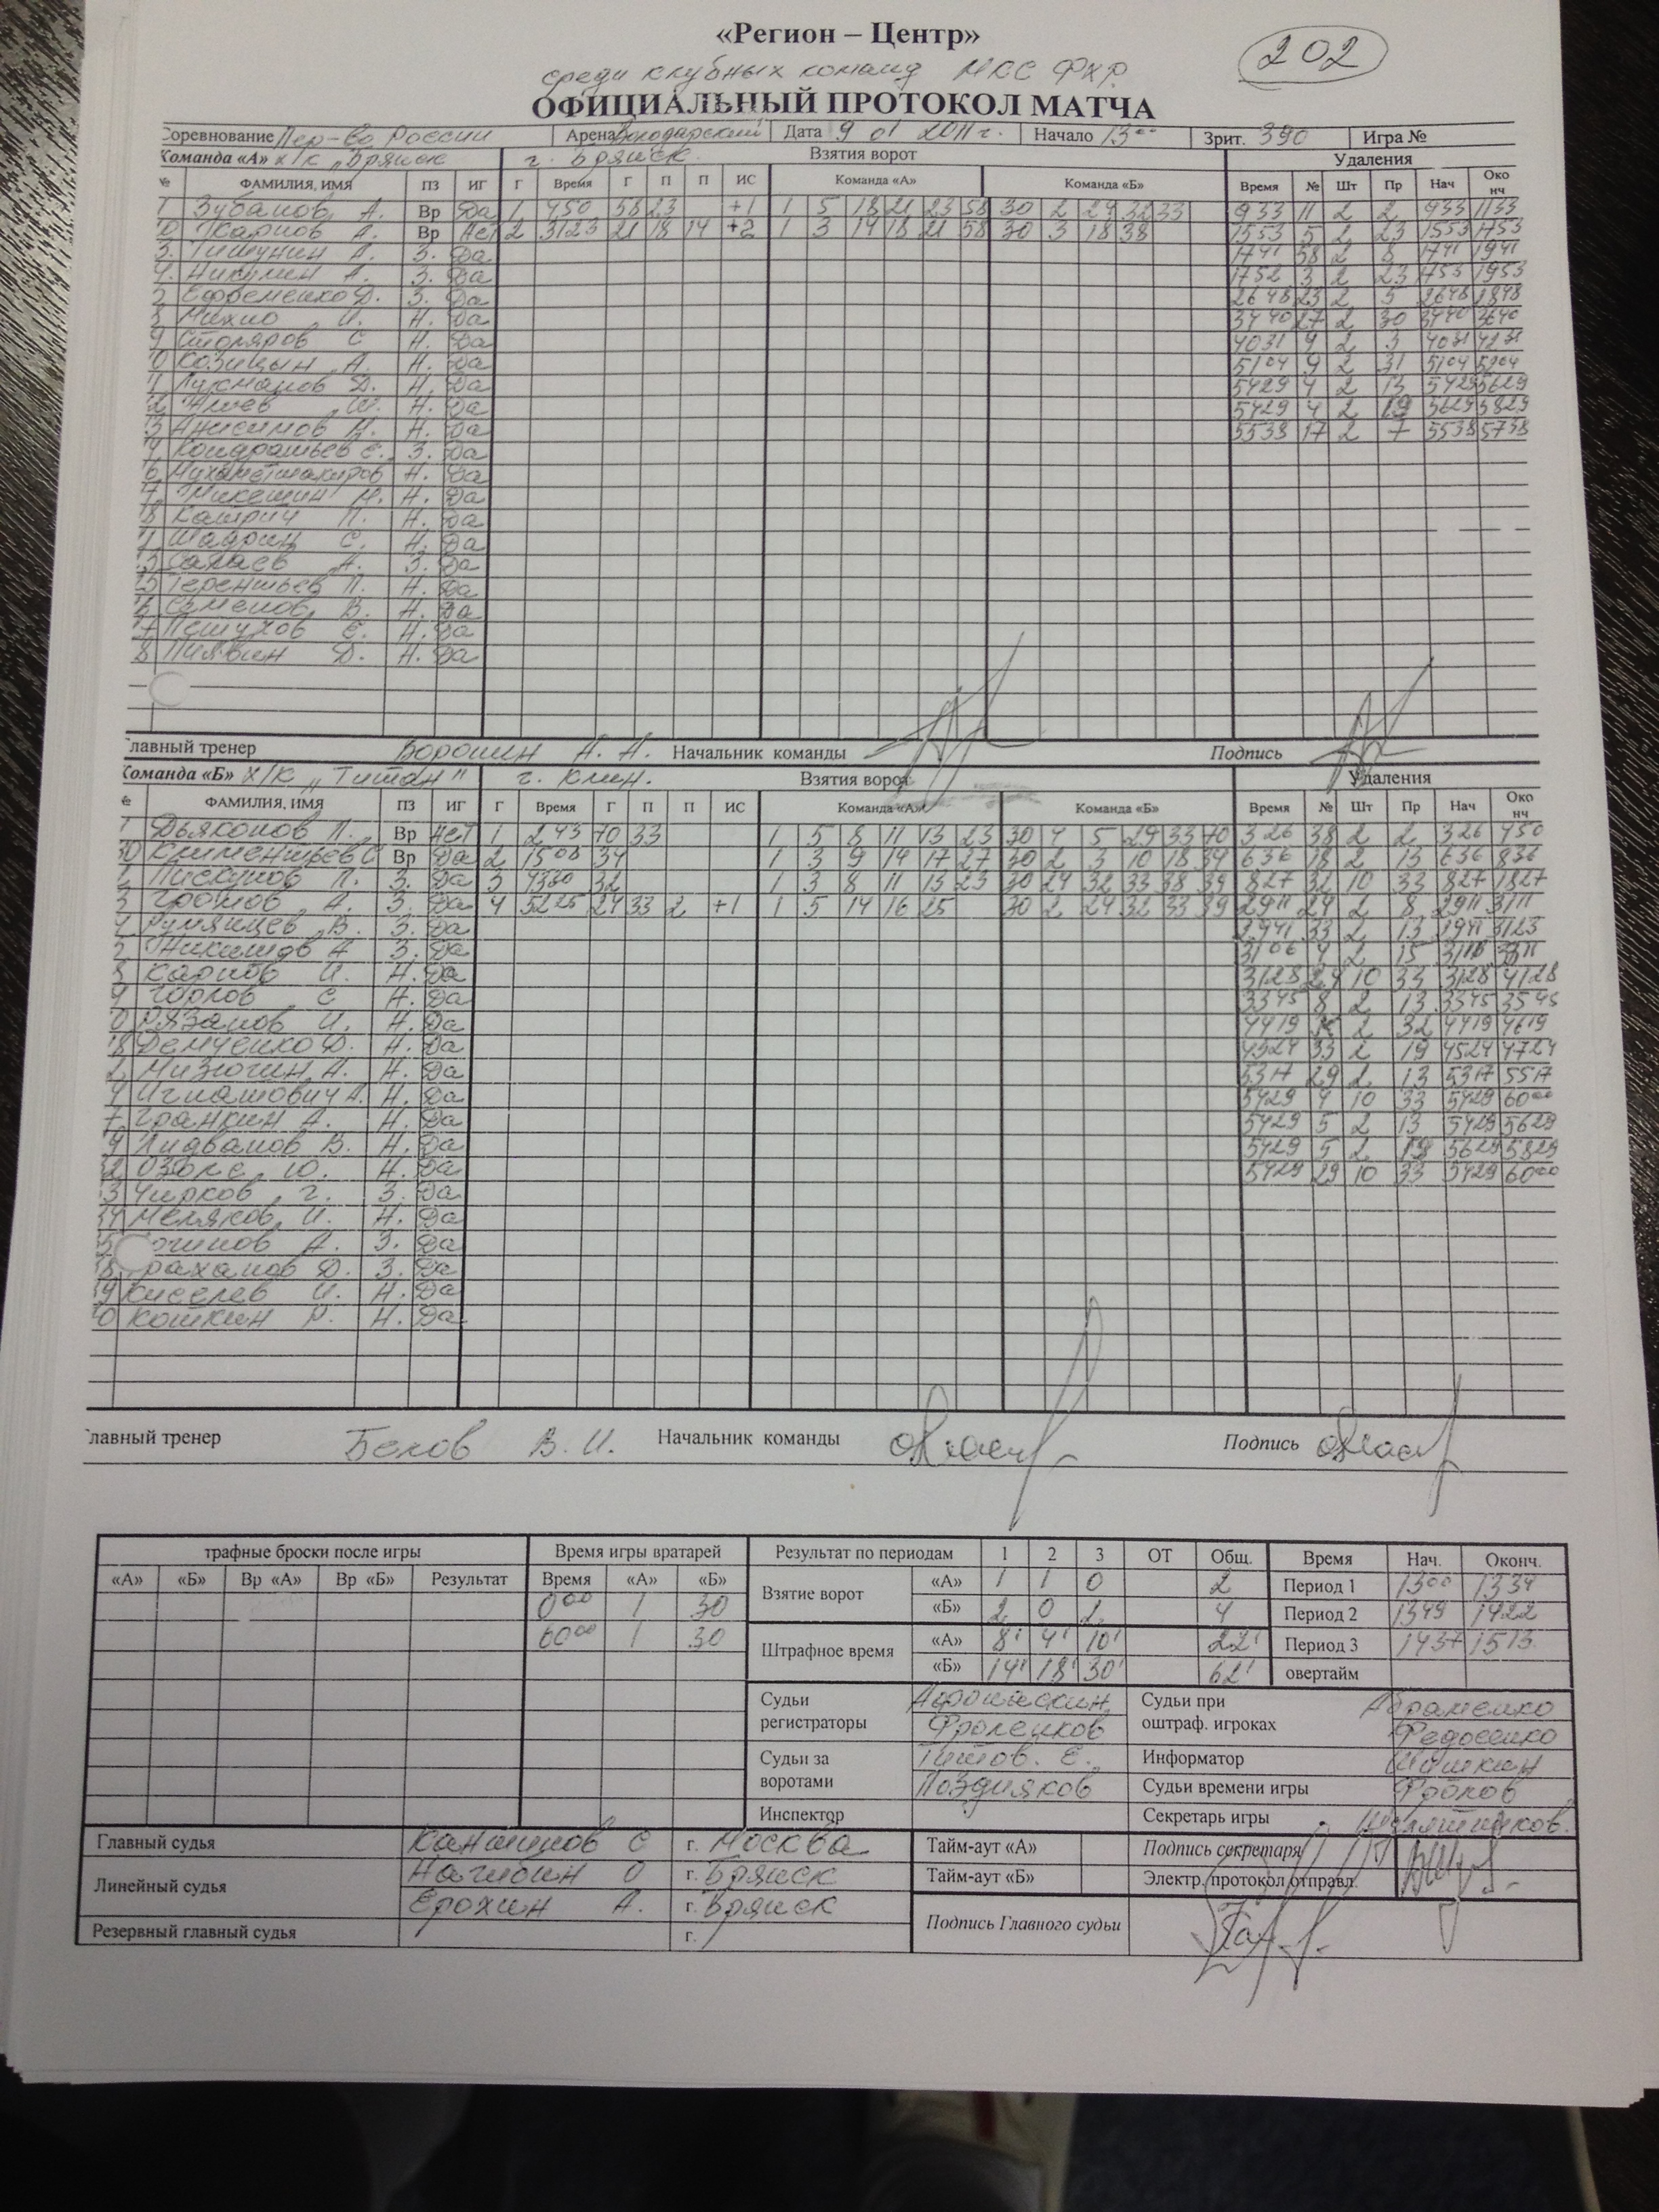 «Регион – Центр»
202
среди клубных команд МКС ФХР
ОФИЦИАЛЬНЫЙ ПРОТОКОЛ МАТЧА
Соревнование Пер-во России Арена Дата 9 01 2011 г. Начало 13 00 Зрит. 390 Игра №
Команда «А» х/к "Брянск г. Брянск Взятия ворот Удаления
№ ФАМИЛИЯ, ИМЯ ПЗ ИГ Г Время Г П П ИС Команда «А» Команда «Б» Время № Шт Пр Нач Око нч
1 Зубанов А. Вр Да 1 450 58 23 +1 1 5 18 21 23 58 30 2 29 32 33 933 11 2 2 933 1133
Вр Нет 2 3123 21 18 14 +2 1 3 14 18 21 58 30 3 18 38 1553 5 2 23 1553 1753
3. Тишунин А. З. Да 1741 58 2 8 1741 1941
4. Никулин А. З. Да 1752 3 2 23 1753 1953
Ефременко Д. З. Да 2648 23 2 5 2648 2848
И. Н. Да 3440 27 2 30 3440 3640
9 Столяров С Н. Да 4031 9 2 3 4031 4231
Козицын А. Н. Да 5104 9 2 31 5104 5304
Лукманов Д. Н. Да 5429 4 2 13 5429 5629
Н. Да 5429 4 2 19 5629 5829
Анисимов М. Н. Да 5538 17 2 7 5538 5738
Кондратьев Е. З. Да
Мухаметшакиров Н. Да
Микешин М. Н. Да
Катрич П. Н. Да
Шадрин С. Н. Да
А. З. Да
Терентьев П. Н. Да
Семенов В. Н. Да
Петухов Е. Н. Да
Пиявин Д. Н. Да
Главный тренер Воронин А. А. Начальник команды Подпись
Команда «Б» Х/К "Титан" г. Клин. Взятия ворот Удаления
№ ФАМИЛИЯ, ИМЯ ПЗ ИГ Г Время Г П П ИС Команда «А» Команда «Б» Время № Шт Пр Нач Око нч
1 Дьяконов П. Вр Нет 1 243 70 33 1 5 8 11 13 23 30 4 5 29 33 70 326 38 2 2 326 450
Климентьев С Вр Да 2 1508 34 1 3 9 14 17 27 30 2 3 10 18 34 636 18 2 13 636 836
Пискунов П. З. Да 3 4330 32 1 3 8 11 13 23 30 29 32 33 38 39 827 32 10 33 827 1827
Громов А. З. Да 4 5225 29 33 2 +1 1 5 14 16 25 30 2 29 32 33 39 2911 29 2 8 2911 3111
Румянцев В. З. Да 2941 33 2 13 2941 3123
Никишов А З. Да 3106 4 2 15
Карпов И. Н. Да 3128 29 10 33 3128 4128
Горлов С Н. Да 3345 8 2 13 3345 3545
Рязанов И. Н. Да 4419 2 32 4419 4619
Демченко Д. Н. Да 4524 33 2 19 4524 4724
Мизюгин А. Н. Да 5317 29 2 13 5317 5517
Игнатович А. Н. Да 5429 4 10 33 5429 60 00
Гранкин А. Н. Да 5429 5 2 13 5429 5629
Лидванов В. Н. Да 5429 5 2 19 5629 5829
Озолс Ю. Н. Да 5429 29 10 33 5429 60 00
Чирков Г. З. Да
Меляков И. Н. Да
А. З. Да
Д. З. Да
Киселев И. Н. Да
Кошкин Р. Н. Да
Главный тренер Белов В. И. Начальник команды Подпись
трафные броски после игры Время игры вратарей Результат по периодам 1 2 3 ОТ Общ. Время Нач. Оконч.
«А» «Б» Вр «А» Вр «Б» Результат Время «А» «Б» Взятие ворот «А» 1 1 0 2 Период 1 13 00 1334
0 00 1 30 «Б» 2 0 2 4 Период 2 1349 1422
60 00 1 30 Штрафное время «А» 8' 4' 10' 22' Период 3 1437 1513
«Б» 14' 18' 30' 62' овертайм
Судьи регистраторы Судьи при оштраф. игроках Абраменко
Фроленков Федосенко
Судьи за воротами Титов. Е. Информатор Шишкин
Поздняков Судьи времени игры
Инспектор Секретарь игры
Главный судья Канашов С г. Москва Тайм-аут «А» Подпись секретаря
Линейный судья Нагибин О г. Брянск Тайм-аут «Б» Электр. протокол отправл.
Ерохин А. г. Брянск
Резервный главный судья г. Подпись Главного судьи